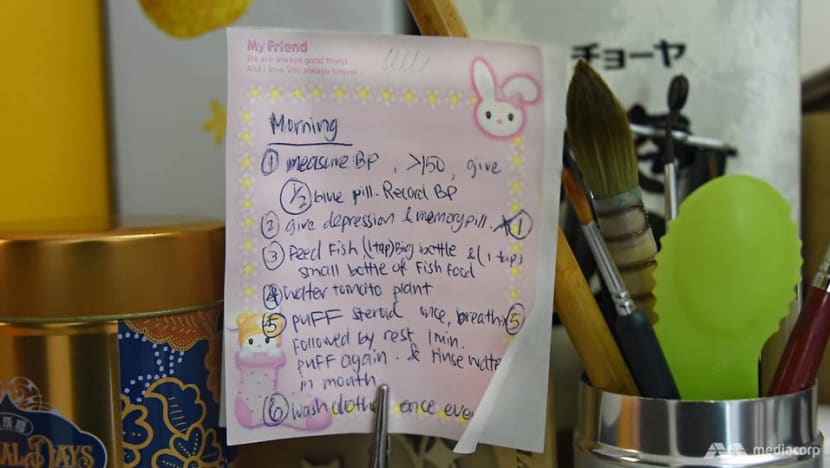 My Friend
We are always good friend
And I love You always forever
Morning
① measure BP, >150, give
1/2 blue pill. Record BP
② give depression & memory pill. 1
③ Feed Fish (1 tap) Big bottle & (1 tap)
small bottle of Fish food
④ water tomato plant
⑤ puff steroid once, breath 5
followed by rest 1 min.
puff again & rinse water
in mouth
⑥ wash once
チョーヤ
DAYS
mediacorp